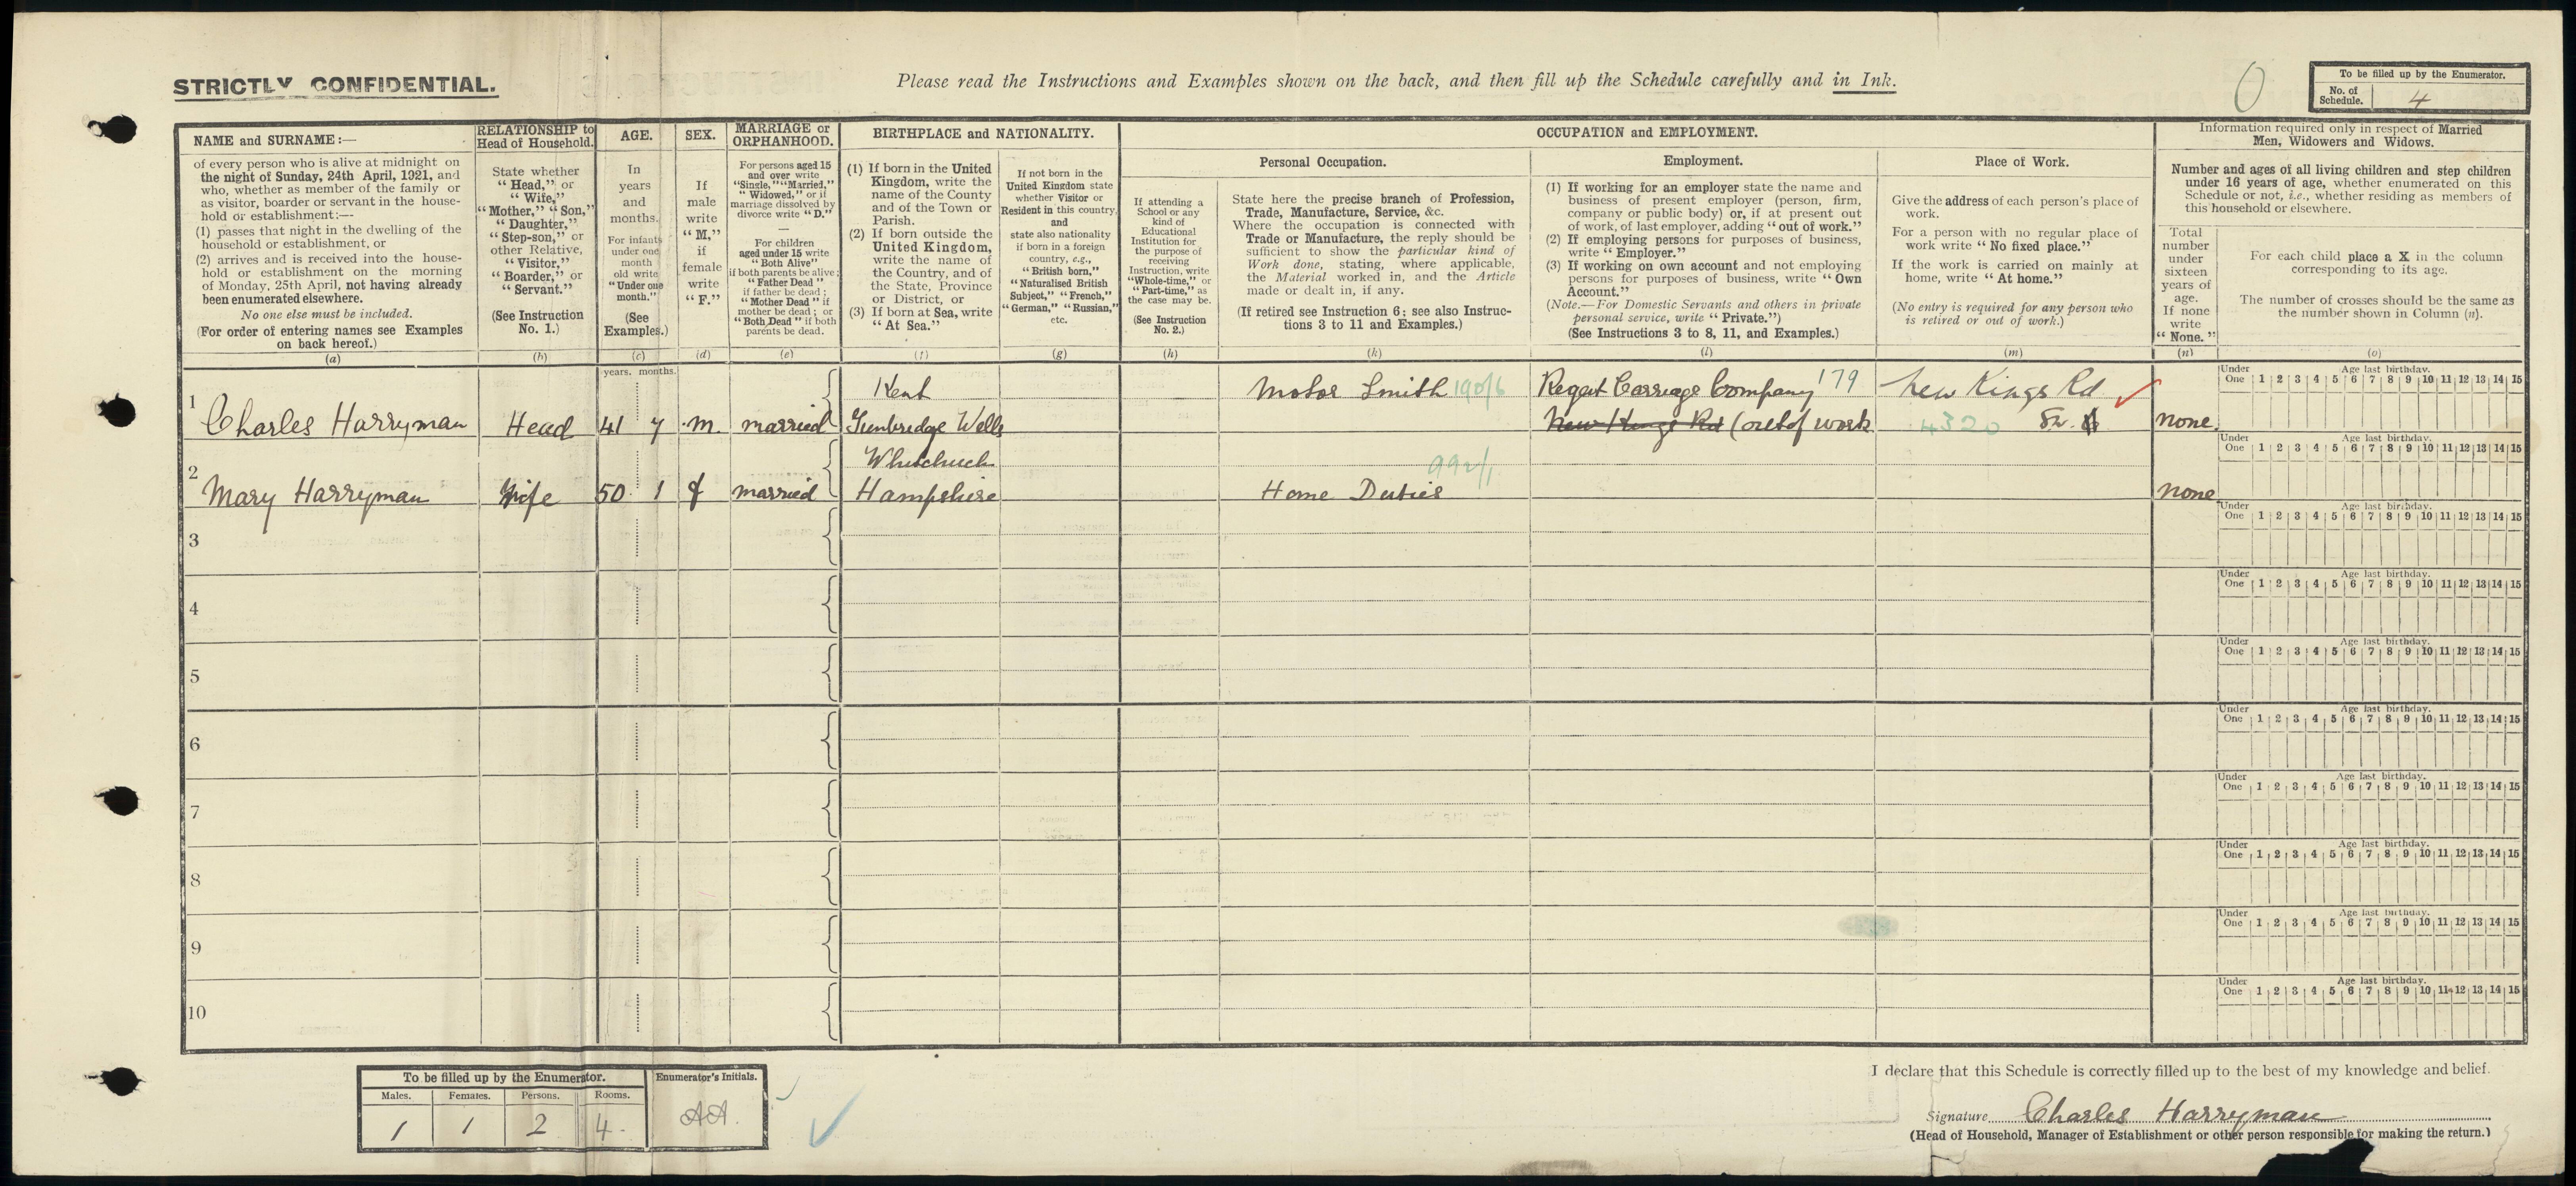 STRICTLY CONFIDENTIAL.
Please read the Instructions and Examples shown on the back, and then fill up the Schedule carefully and in Ink.
0
To be filled up by the Enumerator.
No. of Schedule. 4
NAME and SURNAME:—
of every person who is alive at midnight on
the night of Sunday, 24th April, 1921, and
who, whether as member of the family or
as visitor, boarder or servant in the house-
hold or establishment:—
(1) passes that night in the dwelling of the
household or establishment, or
(2) arrives and is received into the house-
hold or establishment on the morning
of Monday, 25th April, not having already
been enumerated elsewhere.
No one else must be included.
(For order of entering names see Examples
on back hereof.)
(a)
RELATIONSHIP to
Head of Household.
State whether
"Head," or
"Wife,"
"Mother," "Son,"
"Daughter,"
"Step-son," or
other Relative,
"Visitor,"
"Boarder," or
"Servant."
(See Instruction
No. 1.)
(b)
AGE.
In
years
and
months.
For infants
under one
month
old write
"Under one
month."
(See
Examples.)
(c)
SEX.
If
male
write
"M,"
if
female
write
"F."
(d)
MARRIAGE or
ORPHANHOOD.
For persons aged 15
and over write
"Single," "Married,"
"Widowed," or if
marriage dissolved by
divorce write "D."
—
For children
aged under 15 write
"Both Alive"
if both parents be alive;
"Father Dead"
if father be dead;
"Mother Dead" if
mother be dead; or
"Both Dead" if both
parents be dead.
(e)
BIRTHPLACE and NATIONALITY.
(1) If born in the United
Kingdom, write the
name of the County
and of the Town or
Parish.
(2) If born outside the
United Kingdom,
write the name of
the Country, and of
the State, Province
or District, or
(3) If born at Sea, write
"At Sea."
(f)
If not born in the
United Kingdom state
whether Visitor or
Resident in this country,
and
state also nationality
if born in a foreign
country, e.g.,
"British born,"
"Naturalised British
Subject," "French,"
"German," "Russian,"
etc.
(g)
OCCUPATION and EMPLOYMENT.
If attending a
School or any
kind of
Educational
Institution for
the purpose of
receiving
Instruction, write
"Whole-time," or
"Part-time," as
the case may be.
(See Instruction
No. 2.)
(h)
Personal Occupation.
State here the precise branch of Profession,
Trade, Manufacture, Service, &c.
Where the occupation is connected with
Trade or Manufacture, the reply should be
sufficient to show the particular kind of
Work done, stating, where applicable,
the Material worked in, and the Article
made or dealt in, if any.
(If retired see Instruction 6; see also Instruc-
tions 3 to 11 and Examples.)
(k)
Employment.
(1) If working for an employer state the name and
business of present employer (person, firm,
company or public body) or, if at present out
of work, of last employer, adding "out of work."
(2) If employing persons for purposes of business,
write "Employer."
(3) If working on own account and not employing
persons for purposes of business, write "Own
Account."
(Note.—For Domestic Servants and others in private
personal service, write "Private.")
(See Instructions 3 to 8, 11, and Examples.)
(l)
Place of Work.
Give the address of each person's place of
work.
For a person with no regular place of
work write "No fixed place."
If the work is carried on mainly at
home, write "At home."
(No entry is required for any person who
is retired or out of work.)
(m)
Information required only in respect of Married
Men, Widowers and Widows.
Number and ages of all living children and step children
under 16 years of age, whether enumerated on this
Schedule or not, i.e., whether residing as members of
this household or elsewhere.
Total
number
under
sixteen
years of
age.
If none
write
"None."
(n)
For each child place a X in the column
corresponding to its age.
The number of crosses should be the same as
the number shown in Column (n).
(o)
years. months.
Kent Motor Smith 190/6 Regent Carriage Company 179 New Kings Rd
1 Charles Harryman Head 41 7 M. married Tunbridge Wells New Kings Rd (out of work 4320 S.W. 6 none.
Under One Age last birthday. 1 2 3 4 5 6 7 8 9 10 11 12 13 14 15
Whitchurch 992/1
2 Mary Harryman Wife 50 1 f married Hampshire Home Duties none
Under One Age last birthday. 1 2 3 4 5 6 7 8 9 10 11 12 13 14 15
3
Under One Age last birthday. 1 2 3 4 5 6 7 8 9 10 11 12 13 14 15
4
Under One Age last birthday. 1 2 3 4 5 6 7 8 9 10 11 12 13 14 15
5
Under One Age last birthday. 1 2 3 4 5 6 7 8 9 10 11 12 13 14 15
6
Under One Age last birthday. 1 2 3 4 5 6 7 8 9 10 11 12 13 14 15
7
Under One Age last birthday. 1 2 3 4 5 6 7 8 9 10 11 12 13 14 15
8
Under One Age last birthday. 1 2 3 4 5 6 7 8 9 10 11 12 13 14 15
9
Under One Age last birthday. 1 2 3 4 5 6 7 8 9 10 11 12 13 14 15
10
Under One Age last birthday. 1 2 3 4 5 6 7 8 9 10 11 12 13 14 15
To be filled up by the Enumerator.
Males. Females. Persons. Rooms.
1 1 2 4
Enumerator's Initials.
AA.
I declare that this Schedule is correctly filled up to the best of my knowledge and belief.
Signature Charles Harryman
(Head of Household, Manager of Establishment or other person responsible for making the return.)